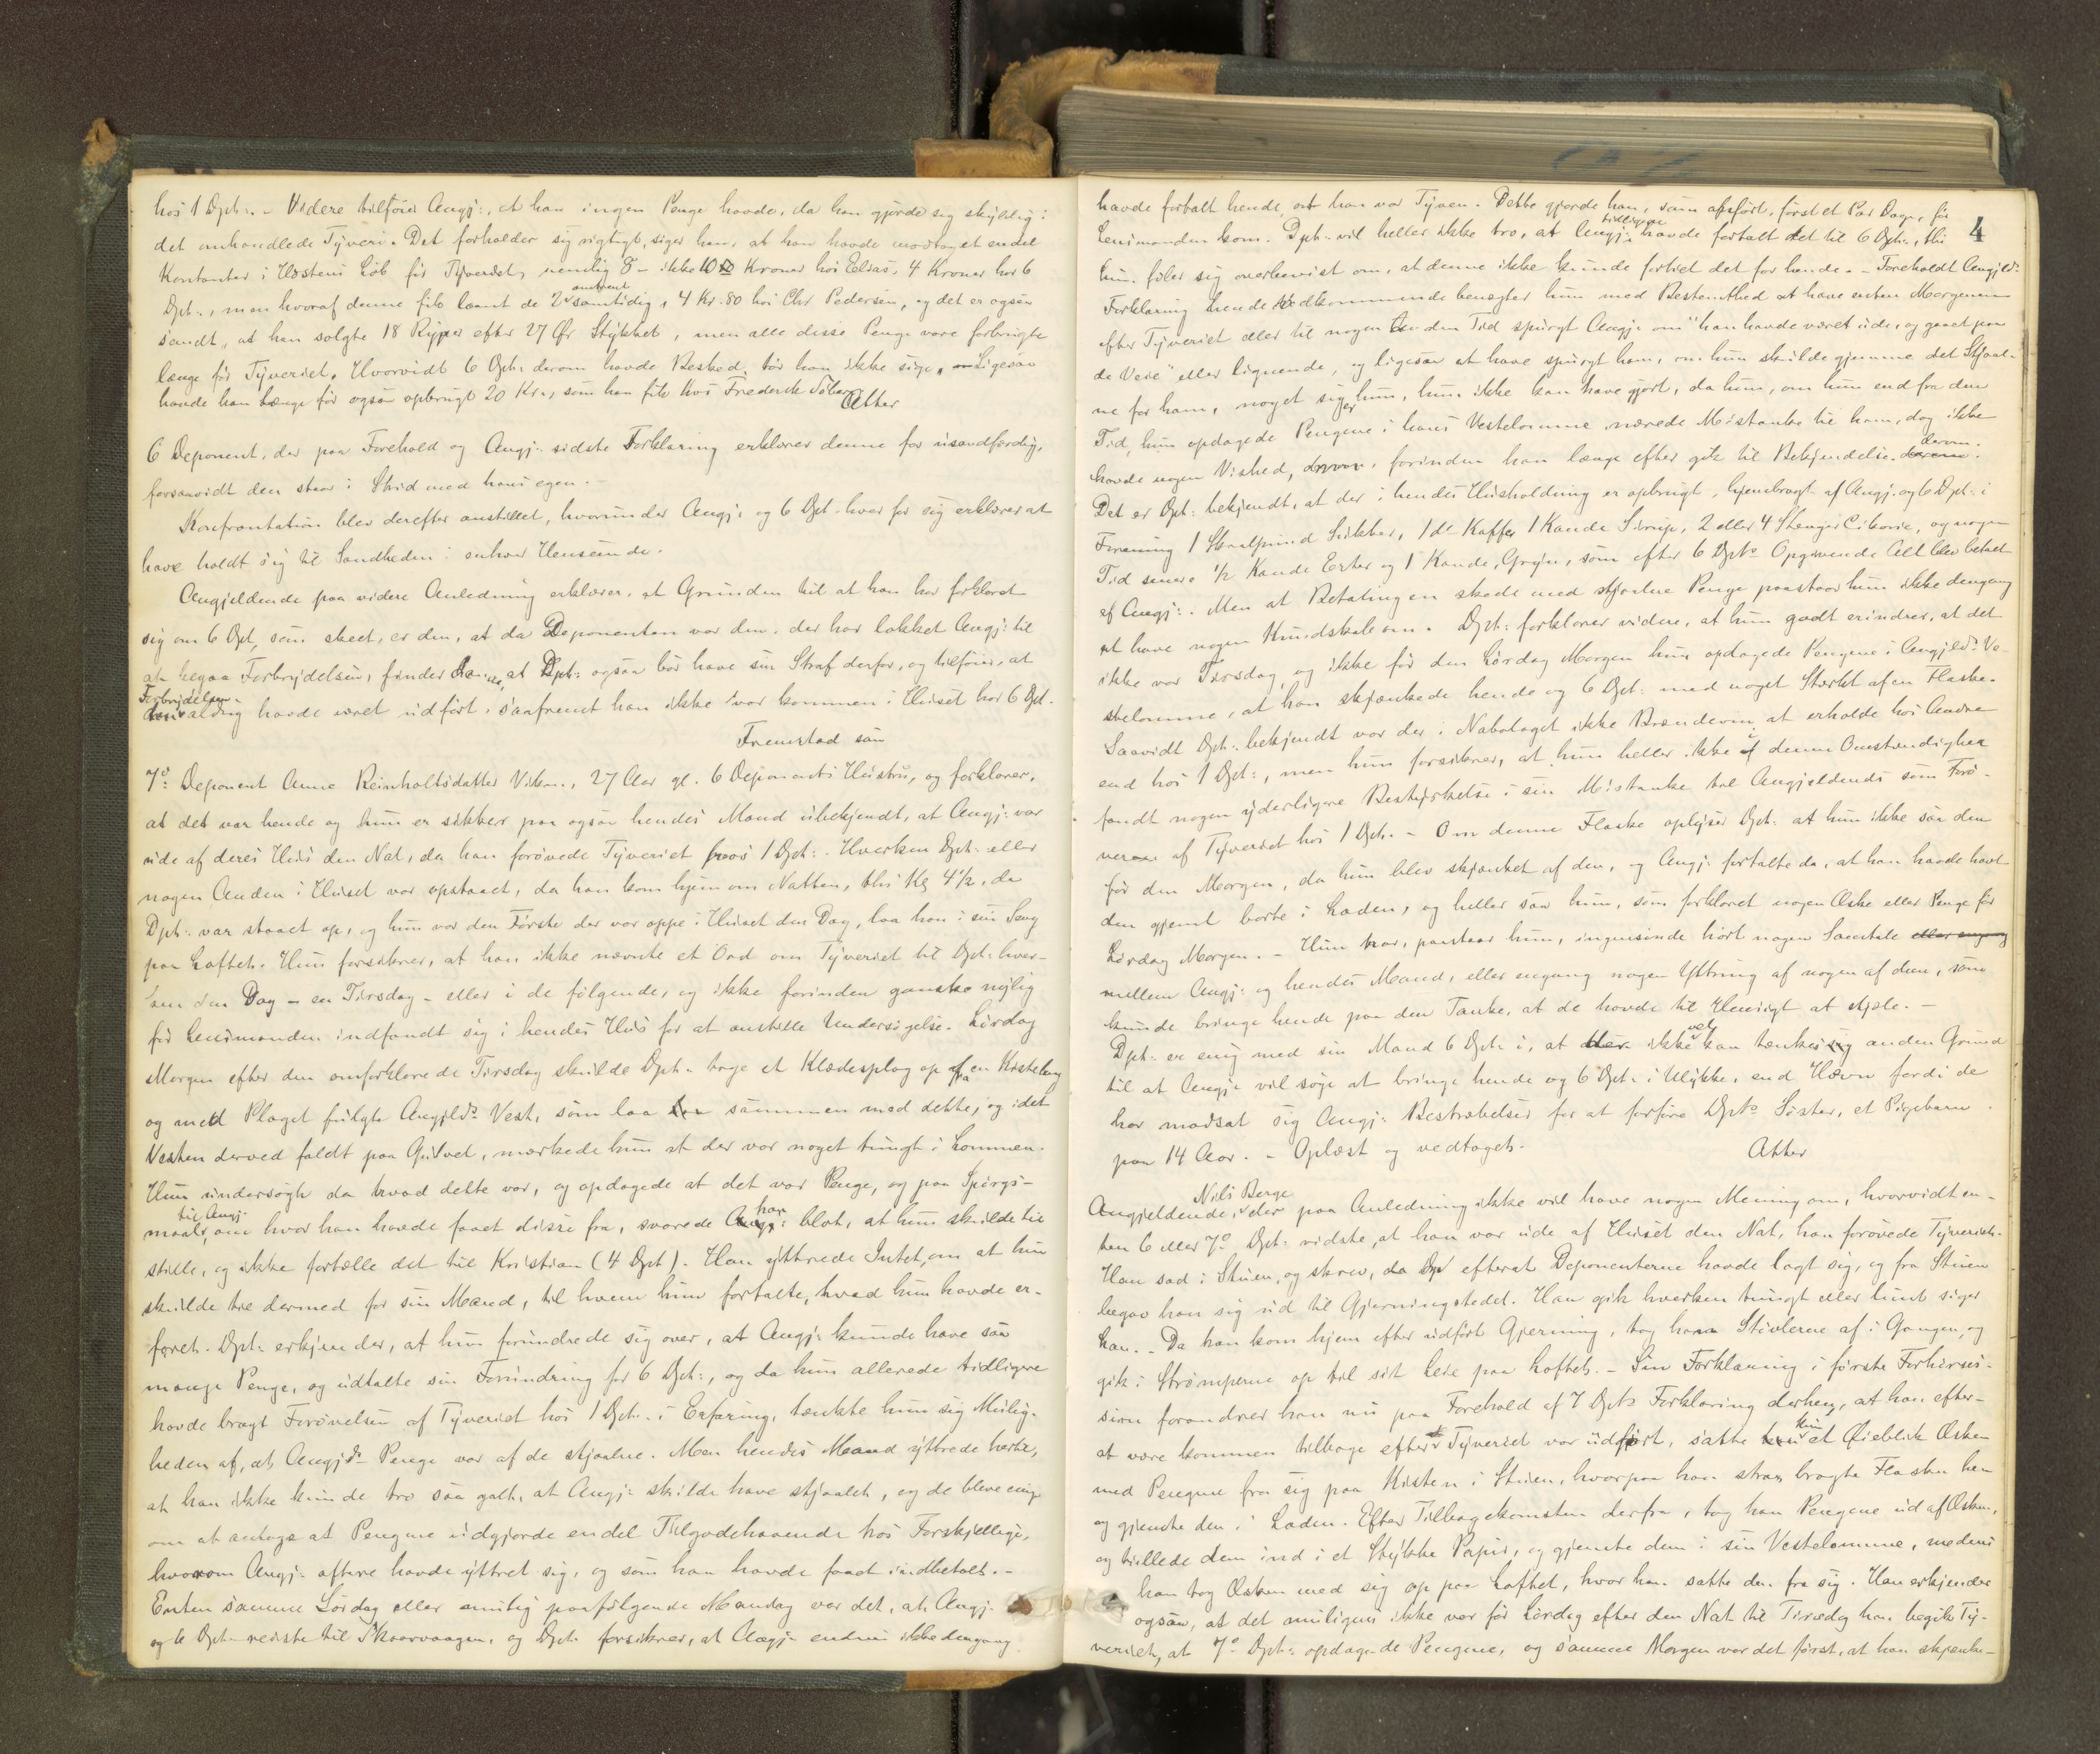 hos 1 Dpt:. - Videre tilføier Angj:, at han ingen Penge havde, da han gjorde sig skyldig i
det omhandlede Tyveri. Det forholder sig rigtigt, siger han, at han havde modtaget endel
Kontanter i Høstens Løb før Tyveriet, nemlig 8 - ikke 10 Kroner hos Elias, 4 Kroner hos 6
Dpt:, men hvoraf denne fik laant de 2 omtrent samtidig, 4 Kr. 80 hos Chr Pedersen, og det er ogsaa
sandt, at han solgte 18 Ryper efter 27 Ør Stykket, men alle disse Penge vare forbrugte
længe før Tyveriet. Hvorvidt 6 Dpt: derom havde Besked, tør han ikke sige. Ligesaa
havde han længe før ogsaa opbrugt 20 Kr., som han fik hos Frederik
Atter
6 Deponent, der paa Forehold og Angj: sidste Forklaring erklærer denne for usandfærdig,
forsaavidt den staar i Strid med hans egen. -
Konfrontation blev derefter anstillet, hvorunder Angj: og 6 Dpt. hver for sig erklærer at
have holdt sig til Sandheden i enhver Henseende.
Angjeldende paa videre Anledning erklærer, at Grunden til at han har forklaret
sig om 6 Dpt, som skeet, er den, at da Deponenten var den, der har lokket Angj: til
at begaa Forbrydelsen, finder han, at Dpt: ogsaa bør have sin Straf derfor, og tilføier, at
Forbrydelsen aldrig havde været udført, saafremt han ikke var kommen i Huset hos 6 Dpt.
Fremstod saa
7de Deponent Anne Reinholtsdatter Viken, 27 Aar gl. 6 Deponents Hustru, og forklarer,
at det var hende og hun er sikker paa ogsaa hendes Mand ubekjendt, at Angj: var
ude af deres Hus den Nat, da han forøvede Tyveriet hos 1 Dpt:. Hverken Dpt: eller
nogen Anden i Huset var opstaaet, da han kom hjem om Natten, thi Kl 4½, da
Dpt: var staaet op, og hun var den Første der var oppe i Huset den Dag, laa han i sin Seng
paa Loftet. Hun forsikrer, at han ikke nævnte et Ord om Tyveriet til Dpt: hver-
ken den Dag - en Tirsdag - eller i de følgende, og ikke forinden ganske nylig
før Lensmanden indfandt sig i hendes Hus for at anstille Undersøgelse. Lørdag
Morgen efter den omforklarede Tirsdag skulde Dpt: tage et Klædesplag op af en Kiste
og med Plaget fulgte Angjlds Vest, som laa sammen med dette, og idet
Vesten derved faldt paa Gulvet, mærkede hun at der var noget tungt i Lommen.
Hun undersøgte da hvad dette var, og opdagede at det var Penge, og paa Spørgs-
maal til Angj. om hvor han havde faaet disse fra, svarede han blot, at hun skulde tie
stille, og ikke fortælle det til Kristian (4 Dpt). Han yttrede Intet om at hun
skulde tie dermed for sin Mand, til hvem hun fortalte, hvad hun havde er-
faret. Dpt: erkjender, at hun forundrede sig over, at Angj: kunde have saa
mange Penge, og udtalte sin Forundring for 6 Dpt:, og da hun allerede tidligere
havde bragt Forøvelsen af Tyveriet hos 1 Dpt: i Erfaring, tænkte hun sig Mulig-
heden af, at Angjds Penge var af de stjaalne. Men hendes Mand yttrede hertil,
at han ikke kunde tro saa galt, at Angj: skulde have stjaalet, og de bleve enige
om at antage at Pengene udgjorde endel Tilgodehavende hos Forskjellige,
hvorom Angj: oftere havde yttret sig, og som han havde faaet indbetalt. -
Enten samme Lørdag eller paafølgende Mandag var det, at Angj:
og 6 Dpt: reiste til Skaarvaagen, og Dpt: forsikrer, at Angj: endnu ikke dengang
4
havde fortalt hende at han var Tyven. Dette gjorde han, som anført, først et Par Dage, før
Lensmanden kom. Dpt: vil heller ikke tro, at Angj: tidligere havde fortalt det til 6 Dpt:, thi
hun føler sig overbevist om, at denne ikke kunde fortiet det for hende. - Foreholdt Angjlds
Forklaring hende vedkommende benægter hun med Bestemthed at have enten Morgenen
efter Tyveriet eller til nogen anden Tid spurgt Angj: om "han havde været ude, og gaaet paa
de Veie" eller lignende, og ligesaa at have spurgt ham, om hun skulde gjemme det Stjaal-
ne for ham, noget siger hun, hun ikke kan have gjort, da hun, om hun end fra den
Tid, hun opdagede Pengene i hans Vestelomme nærede Mistanke til ham, dog ikke
havde nogen Vished, forinden han længe efter gik til Bekjendelse derom.
Det er Dpt: bekjendt, at der i hendes Husholdning er opbrugt, hjembragt af Angj: og 6 Dpt: i
Forening 1 Skaalpund Sukker, 1 do Kaffe, 1 Kande Sirup, 2 eller 4 Stænger Cikorie, og nogen
Tid senere ½ Kande Erter og 1 Kande Gryn, som efter 6 Dpts Opgivende Alt blev betalt
af Angj:. Men at Betalingen skede med stjaalne Penge paastaar hun ikke dengang
at have nogen Kundskab om. Dpt: forklarer videre, at hun godt erindrer, at det
ikke var Tirsdag, og ikke før den Lørdag Morgen hun opdagede Pengene i Angjlds Ve-
stelomme, at han skjænkede hende og 6 Dpt: med noget Stærkt af en Flaske.
Saavidt Dpt: bekjendt var der i Nabolaget ikke Brændevin at erholde hos Andre
end hos 1 Dpt:, men hun forsikrer, at hun heller ikke i denne Omstændighed
fandt nogen yderligere Bestyrkelse i sin Mistanke til Angjeldende som Forø-
veren af Tyveriet hos 1 Dpt. - Om denne Flaske oplyser Dpt: at hun ikke saa den
før den Morgen, da hun blev skjænket af den, og Angj: fortalte da, at han havde havt
den gjemt borte i Laden, og heller saa hun, som forklaret nogen Æske eller Penge før
Lørdag Morgen. - Hun har, paastaar hun, ingensinde hørt nogen Samtale
mellem Angj: og hendes Mand, eller engang nogen Yttring af nogen af dem, som
kunde bringe hende paa den Tanke, at de havde til Hensigt at stjæle. -
Dpt: er enig med sin Mand 6 Dpt: i, at der ikke vel kan tænkes anden Grund
til at Angj: vil søge at bringe hende og 6 Dpt: i Ulykke, end Hævn fordi de
har modsat sig Angj: Bestræbelser for at forføre Dpts Søster, et Pigebarn
paa 14 Aar. - Oplæst og vedtaget.
Atter
Angjeldende, Nils Berge der paa Anledning ikke vil have nogen Mening om, hvorvidt en-
ten 6 eller 7de Dpt: vidste, at han var ude af Huset den Nat, han forøvede Tyveriet.
Han sad i Stuen, og skrev, da efterat Deponenterne havde lagt sig, og fra Stuen
begav han sig ud til Gjerningstedet. Han gik hverken tungt eller lint siger
han. - Da han kom hjem efter udført Gjerning, tog han Støvlerne af i Gangen, og
gik i Strømperne op til sit Leie paa Loftet. - Sin Forklaring i første Forhørsses-
sion forandrer han nu paa Forehold af 7 Dpts Forklaring derhen, at han efter-
at være kommen tilbage efterat Tyveriet var udført, satte kun et Øieblik Æsken
med Pengene fra sig paa Kisten i Stuen, hvorpaa han strax bragte Flasken hen
og gjemte den i Laden. Efter Tilbagekomsten derfra, tog han Pengene ud af Æsken,
og trillede dem ind i et Stykke Papir, og gjemte dem i sin Vestelomme, medens
han tog Æsken med sig op paa Loftet, hvor han satte den fra sig. Han erkjender
ogsaa, at det muligens ikke var før Lørdag efter den Nat til Tirsdag han begik Ty-
veriet, at 7de Dpt: opdagede Pengene, og samme Morgen var det først, at han skjænke-